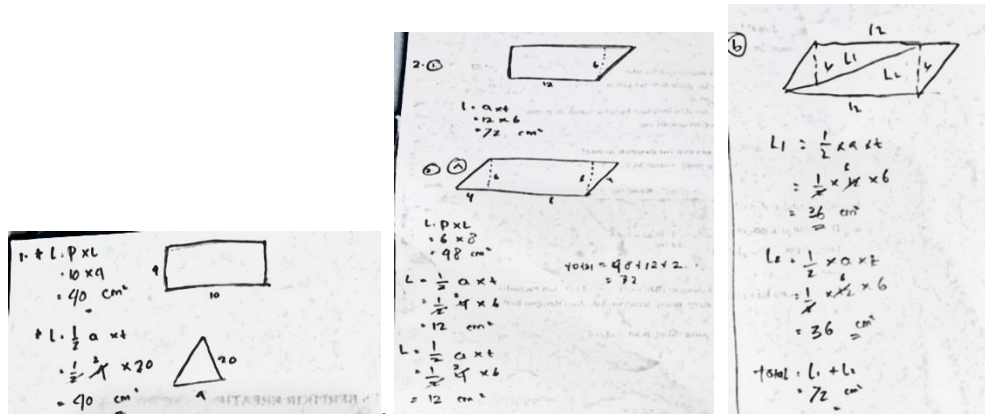 1. * L. P x L
= 10 x 4
= 40 cm²
4
10
* L. 1/2 a x t
= 1/2 4 x 20
= 40 cm²
20
4
2. a
6
12
L = a x t
= 12 x 6
= 72 cm²
6
6
4
8
L. P x L
= 6 x 8
= 48 cm²
L = 1/2 a x t
= 1/2 4 x 6
= 12 cm²
L = 1/2 a x t
= 1/2 4 x 6
= 12 cm²
total = 48 + 12 + 2
= 72
b
12
L1
L2
12
L1 = 1/2 x a x t
= 1/2 x 12 x 6
= 36 cm²
L2 = 1/2 x a x t
= 1/2 x 12 x 6
= 36 cm²
total = L1 + L2
= 72 cm²